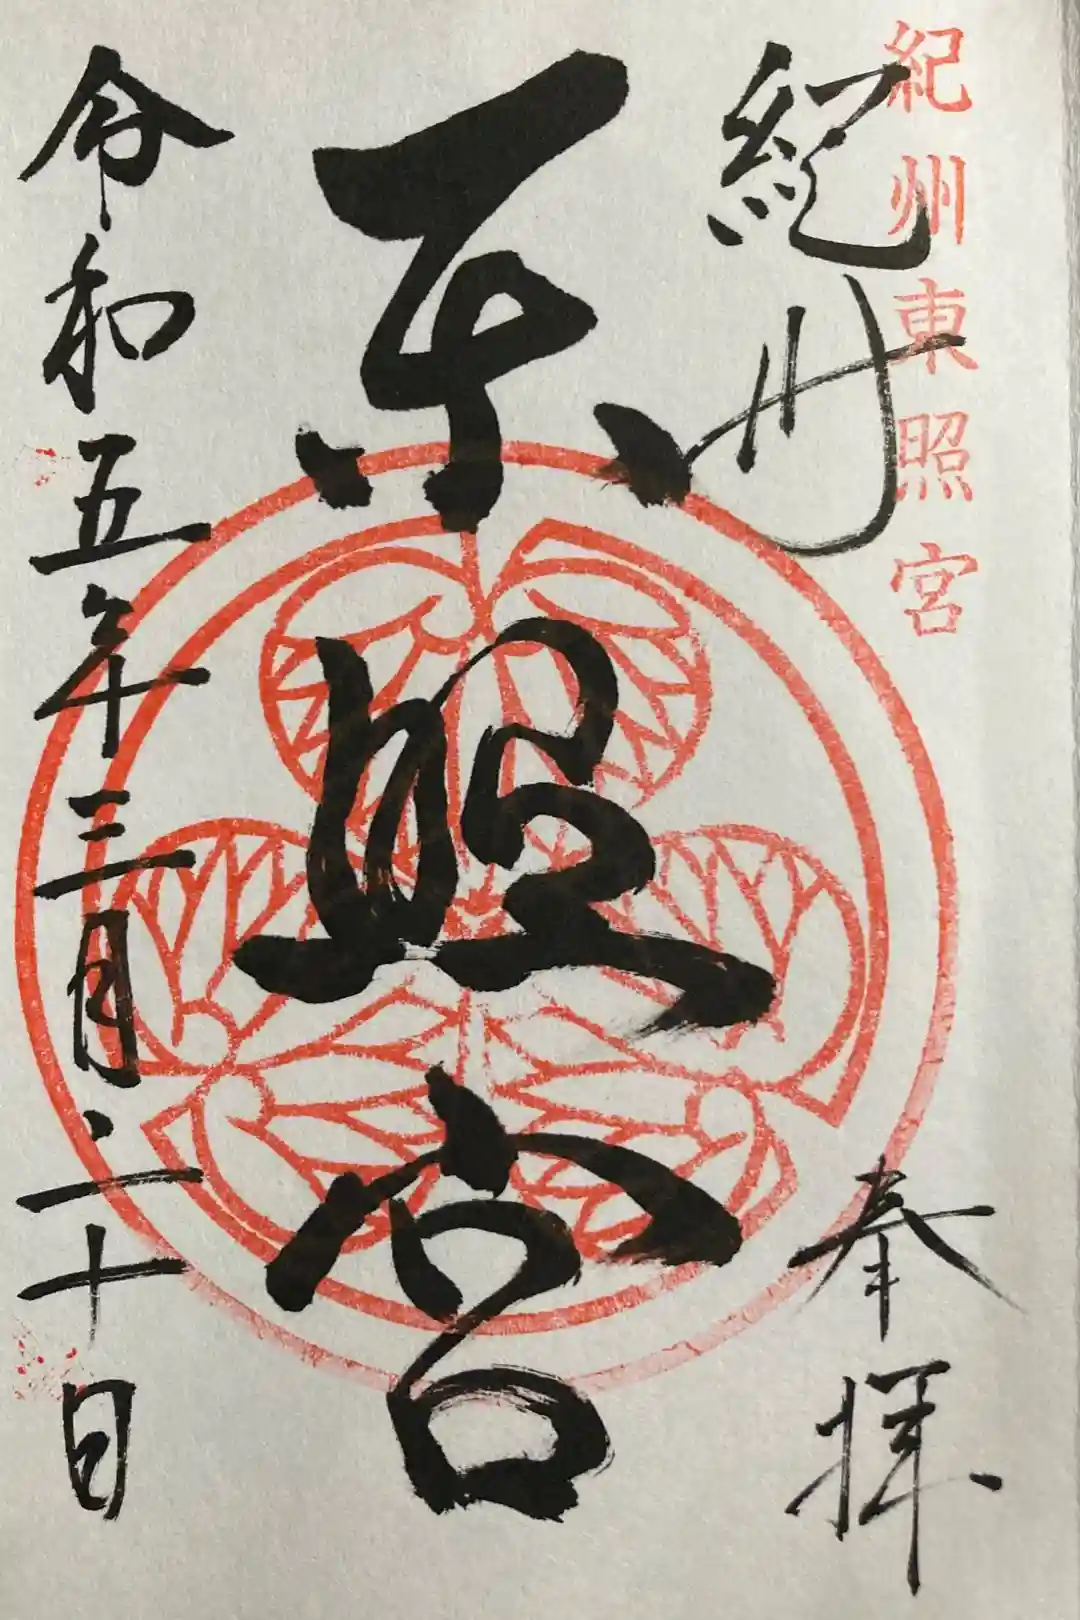 紀州東照宮
紀州
奉拝
东照宮
令和五年三月二十日